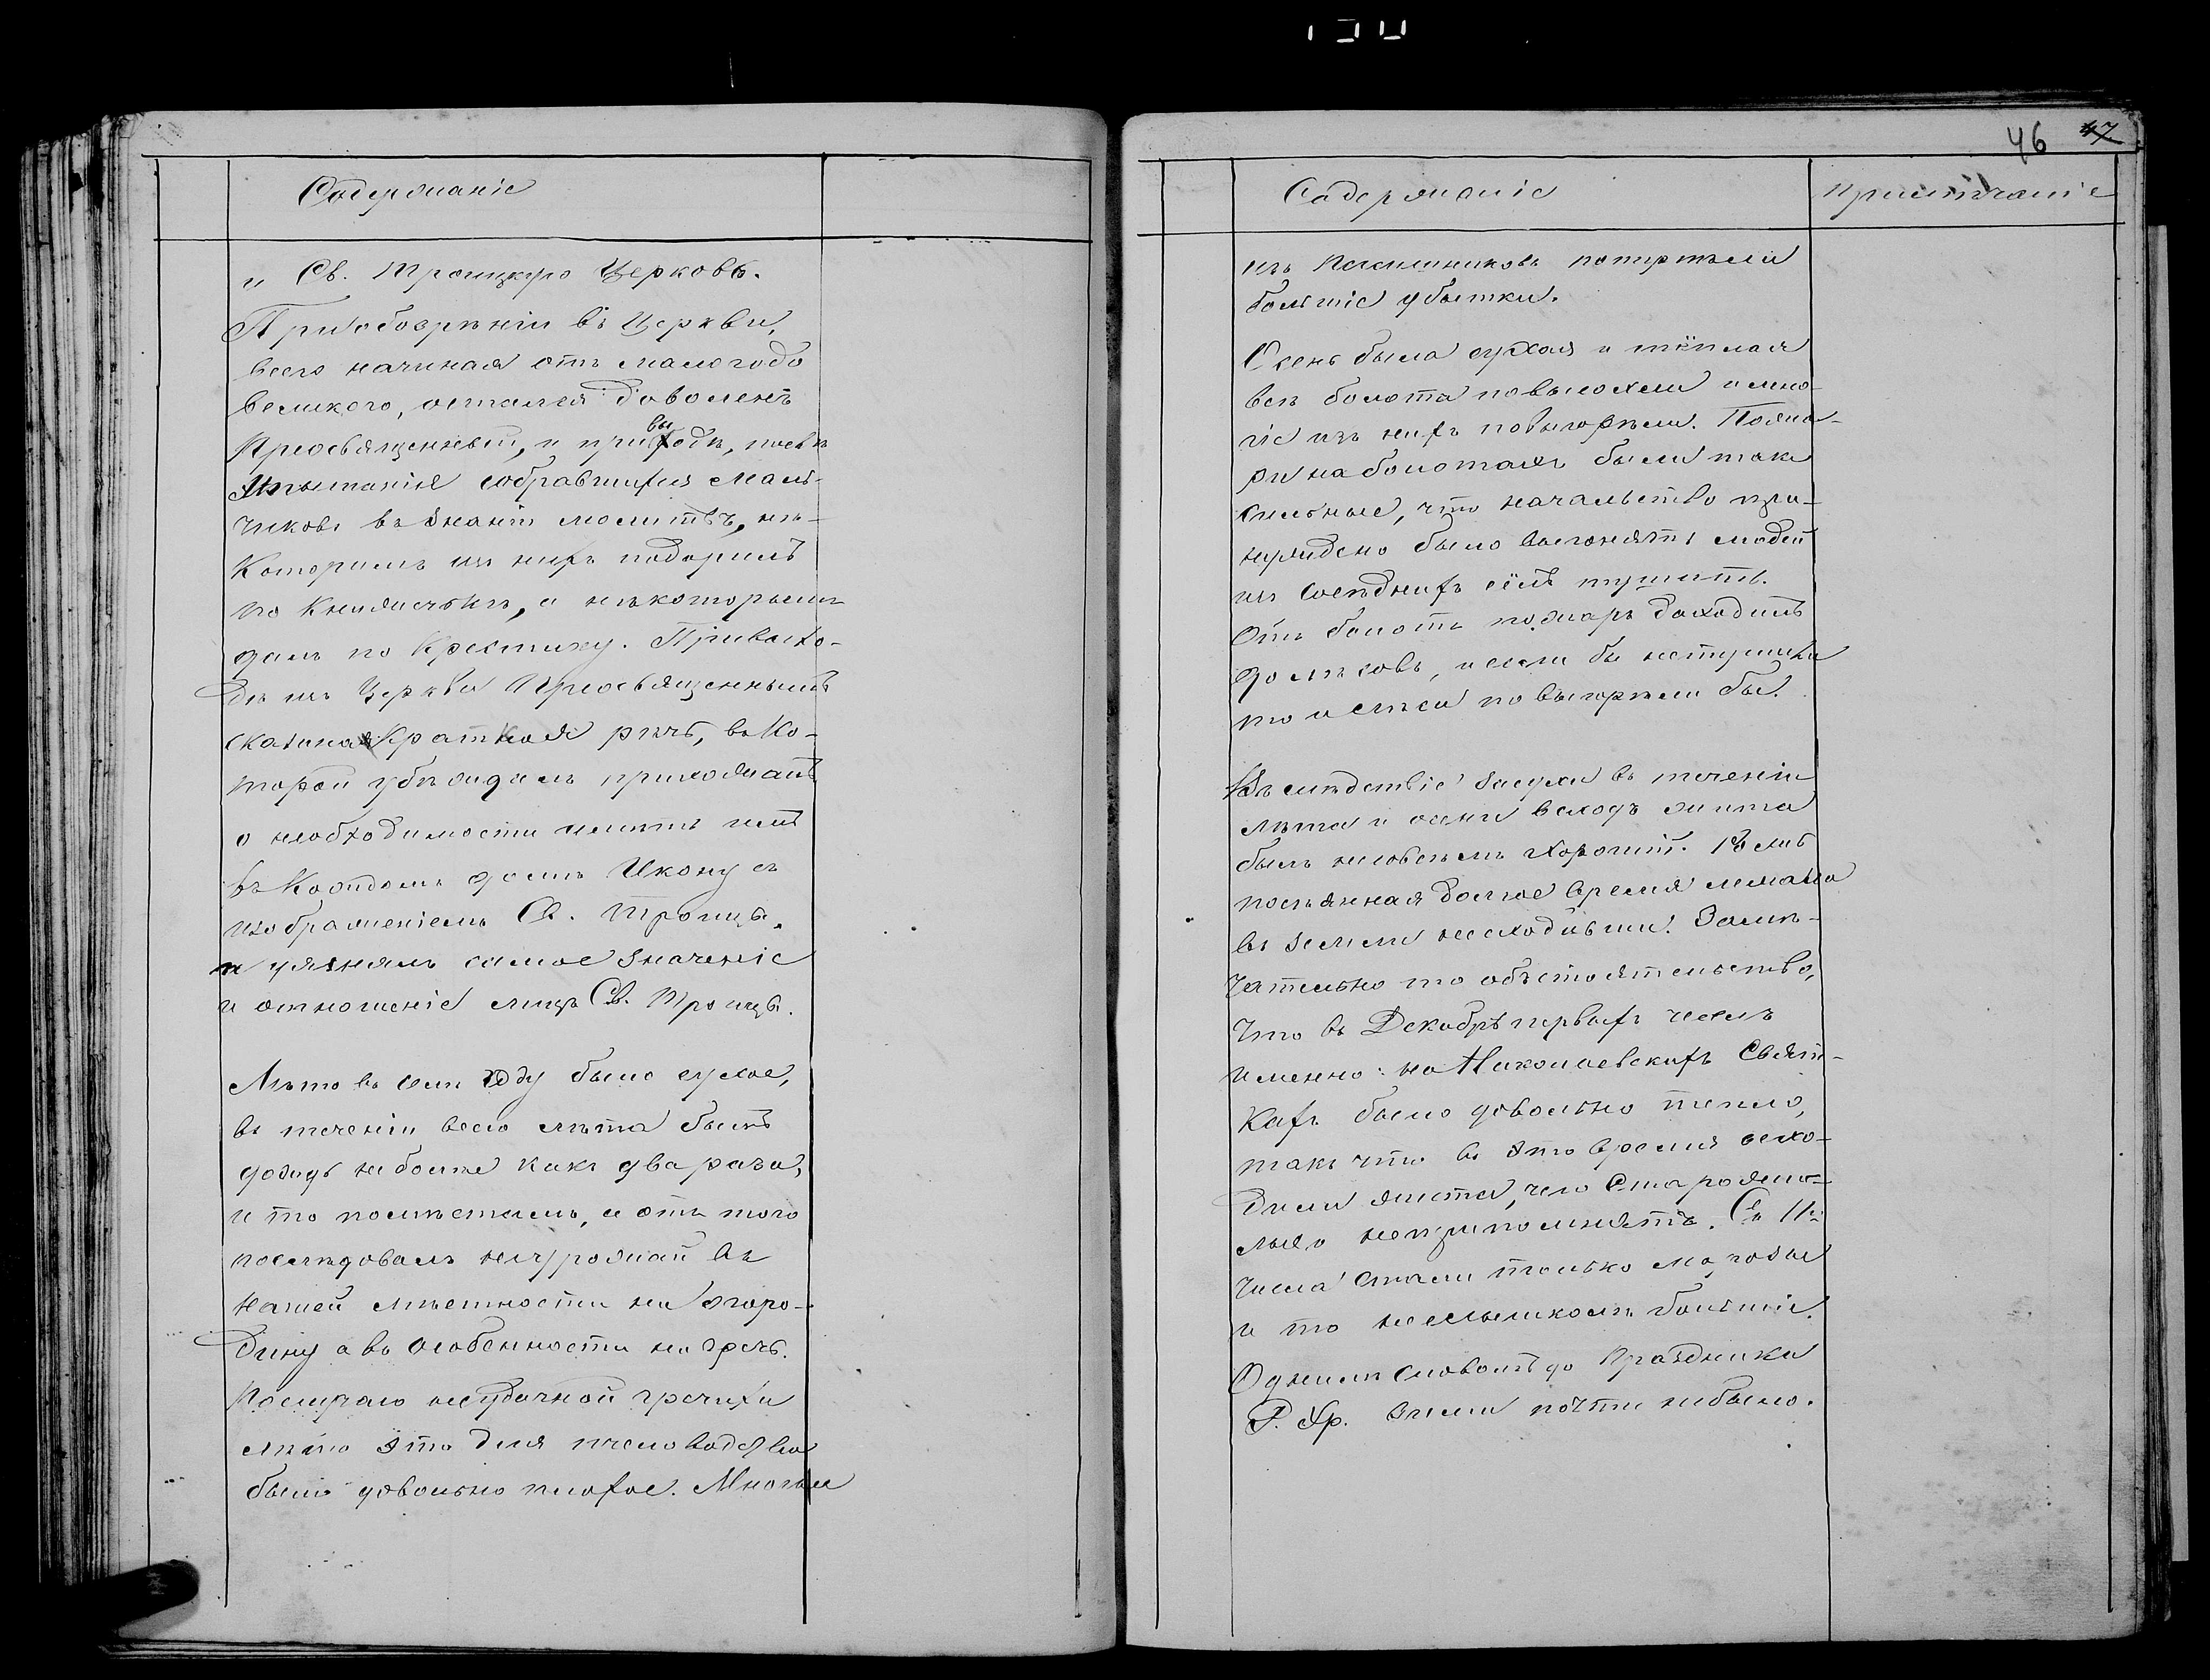 Содержаніе
и Св. Троицкую Церковь.
При обозреніи въ Церкви,
всего начиная отъ малого до
великого, остался доволенъ
Преосвященный, и при выходе, после
испытанія собравшихся маль-
чиковъ въ знаніи молитвъ, не-
которимъ изъ нихъ подарилъ
по книжечке, а некоторымъ
далъ по крестику. При выхо-
де изъ Церкви Преосвященнымъ
сказана краткая речь, въ ко-
торой убеждалъ прихожанъ
о необходимости иметь имъ
въ каждомъ доме Икону съ
изображеніемъ Св. Троицы,
и уяснялъ самое значеніе
и отношеніе лицъ Св. Троицы.
Лето въ семъ году было сухое,
въ теченіи всего лета былъ
дождь не более какъ два раза,
и то полместамъ, а отъ того
последовалъ неурожай въ
нашей местности на огоро-
дину а въ особенности на гречь.
По случаю неудачной гречихи
лето это для пчеловодства
было довольно плохое. Многые
46 47
Содержаніе
Примѣчаніе
изъ Пасешниковъ потирпели
большіе убытки.
Осень была сухая и тёплая
все болота повысохли и мно-
гіе изъ нихъ повыгорели. Пожа-
ри на болотахъ были так
сильные, что начальство при-
нуждено было выгонять людей
изъ соседнихъ сёлъ тушить.
Отъ болотъ пожаръ доходилъ
до лесовъ, и если бы не тушили
то и леса повыгорели бы.
Въ следствіе засухи въ теченіи
лета и осени всходъ жита
былъ не совсемъ хорошій.
посеянная долгое время лежала
въ земли не сходивши. Заме-
чательно то обстоятельство,
что въ Декабре первыхъ чеслъ
именно: на Николаевскихъ Свят-
кахъ было довольно тепло,
такъ что въ это время всхо-
дили жита, чего Старожи-
лы не припомнятъ. Съ 11го
числа стали только морозы
и то не слышкомъ большіе.
Однимъ словомъ до Праздника
Р. Хр. зимы почти небыло.